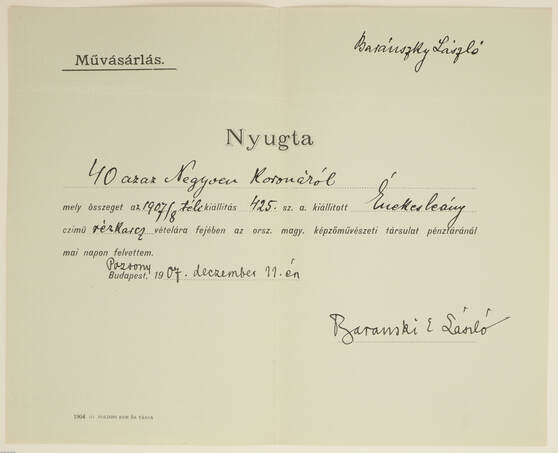 Baránszky László
Művásárlás.
Nyugta
40 azaz Negyven Koronáról
mely összeget az 1907/8 téli kiállítás 425. sz. a. kiállított Énekesleány
czimű rézkarcz vételára fejében az orsz. magy. képzőművészeti társulat pénztáránál
mai napon felvettem.
Pozsony
Budapest, 1907. deczember 11.én
Baranski E László
1904